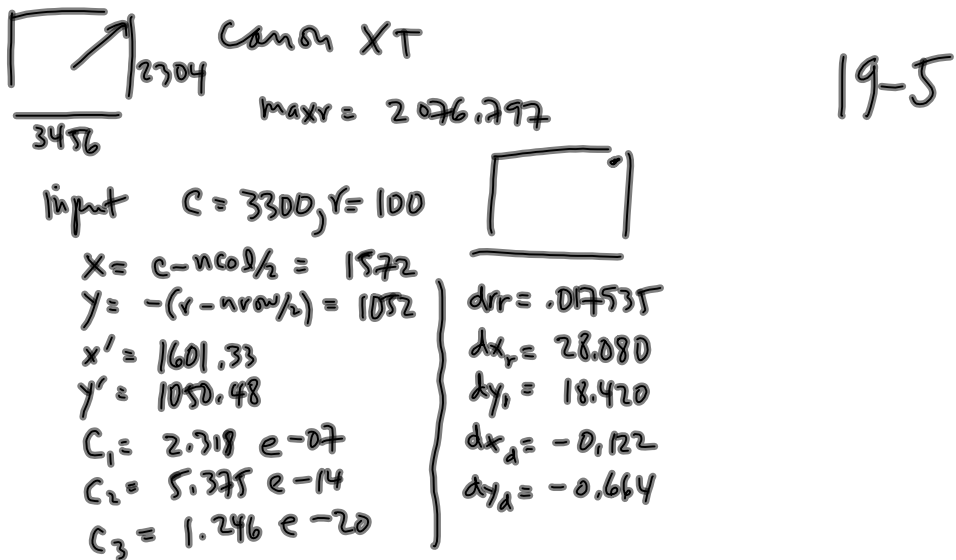 Canon XT
19-5
2304
maxr = 2076.797
3456
input C = 3300, r = 100
x = c - ncol/2 = 1572
y = -(r - nrow/2) = 1052
x' = 1601.33
y' = 1050.48
C₁ = 2.318 e-07
C₂ = 5.375 e-14
C₃ = 1.246 e-20
drr = .017535
dxᵣ = 28.080
dyᵣ = 18.420
dx_d = -0.122
dy_d = -0.664